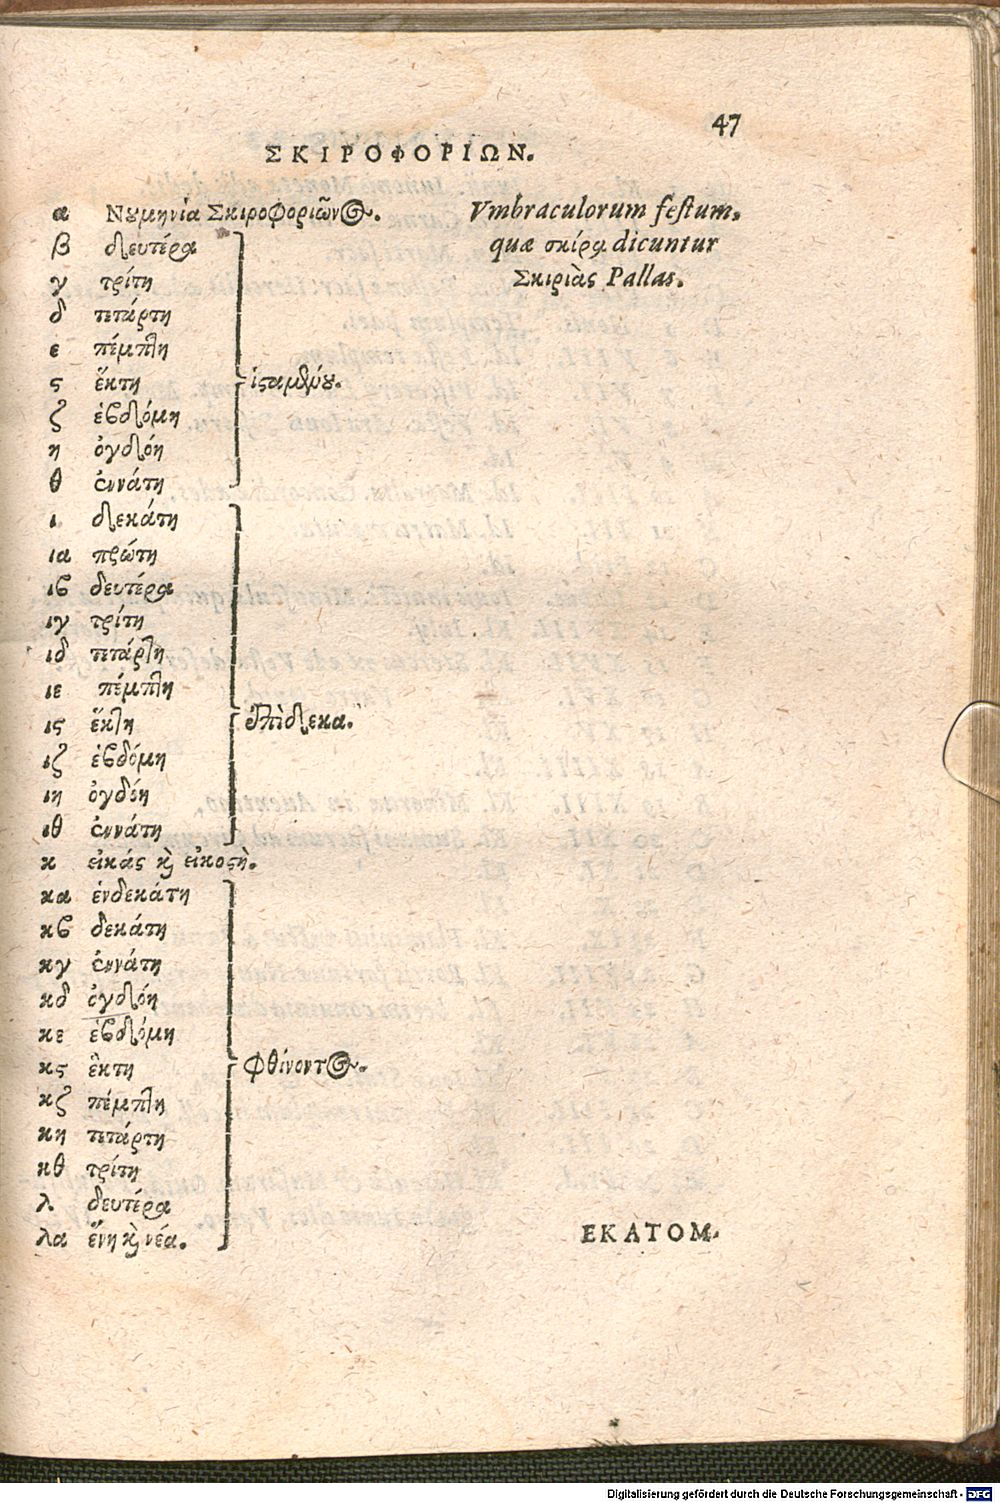 47
ΣΚΙΡΟΦΟΡΙΩΝ.
α Νουμηνία Σκιροφοριῶνος. Vmbraculorum festum,
β δευτέρα quæ σκίρα dicuntur
γ τρίτη Σκιριὰς Pallas.
δ τετάρτη
ε πέμπτη
ς ἕκτη ἱσταμένου.
ζ ἑβδόμη
η ὀγδόη
θ ἐννάτη
ι δεκάτη
ια πρώτη
ιβ δευτέρα
ιγ τρίτη
ιδ τετάρτη
ιε πέμπτη
ις ἕκτη ἐπὶ δεκα.
ιζ ἑβδόμη
ιη ὀγδόη
ιθ ἐννάτη
κ εἰκάς καὶ εἰκοστὴ.
κα ἑνδεκάτη
κβ δεκάτη
κγ ἐννάτη
κδ ὀγδόη
κε ἑβδόμη
κς ἕκτη φθίνοντος.
κζ πέμπτη
κη τετάρτη
κθ τρίτη
λ δευτέρα
λα ἕνη καὶ νέα.
ΕΚΑΤΟΜ-
Digitalisierung gefördert durch die Deutsche Forschungsgemeinschaft - DFG